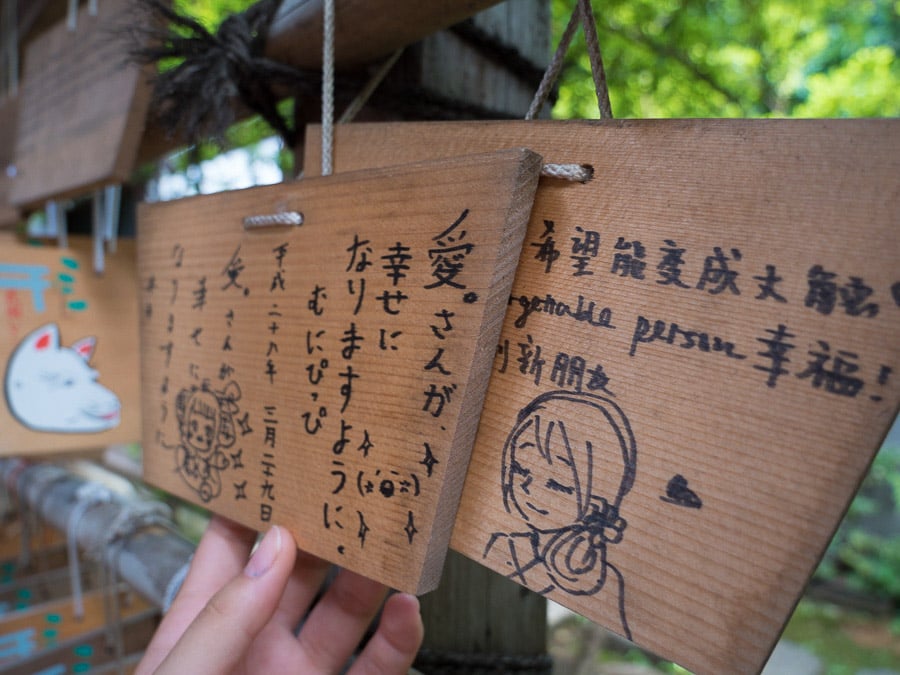 愛。さんが、
幸せに
なりますように。
むにぴっぴ
平成二十八年 三月二十九日
愛。さんが
幸せに
なりますように
希望能变成大触
person 幸福!
新朋友